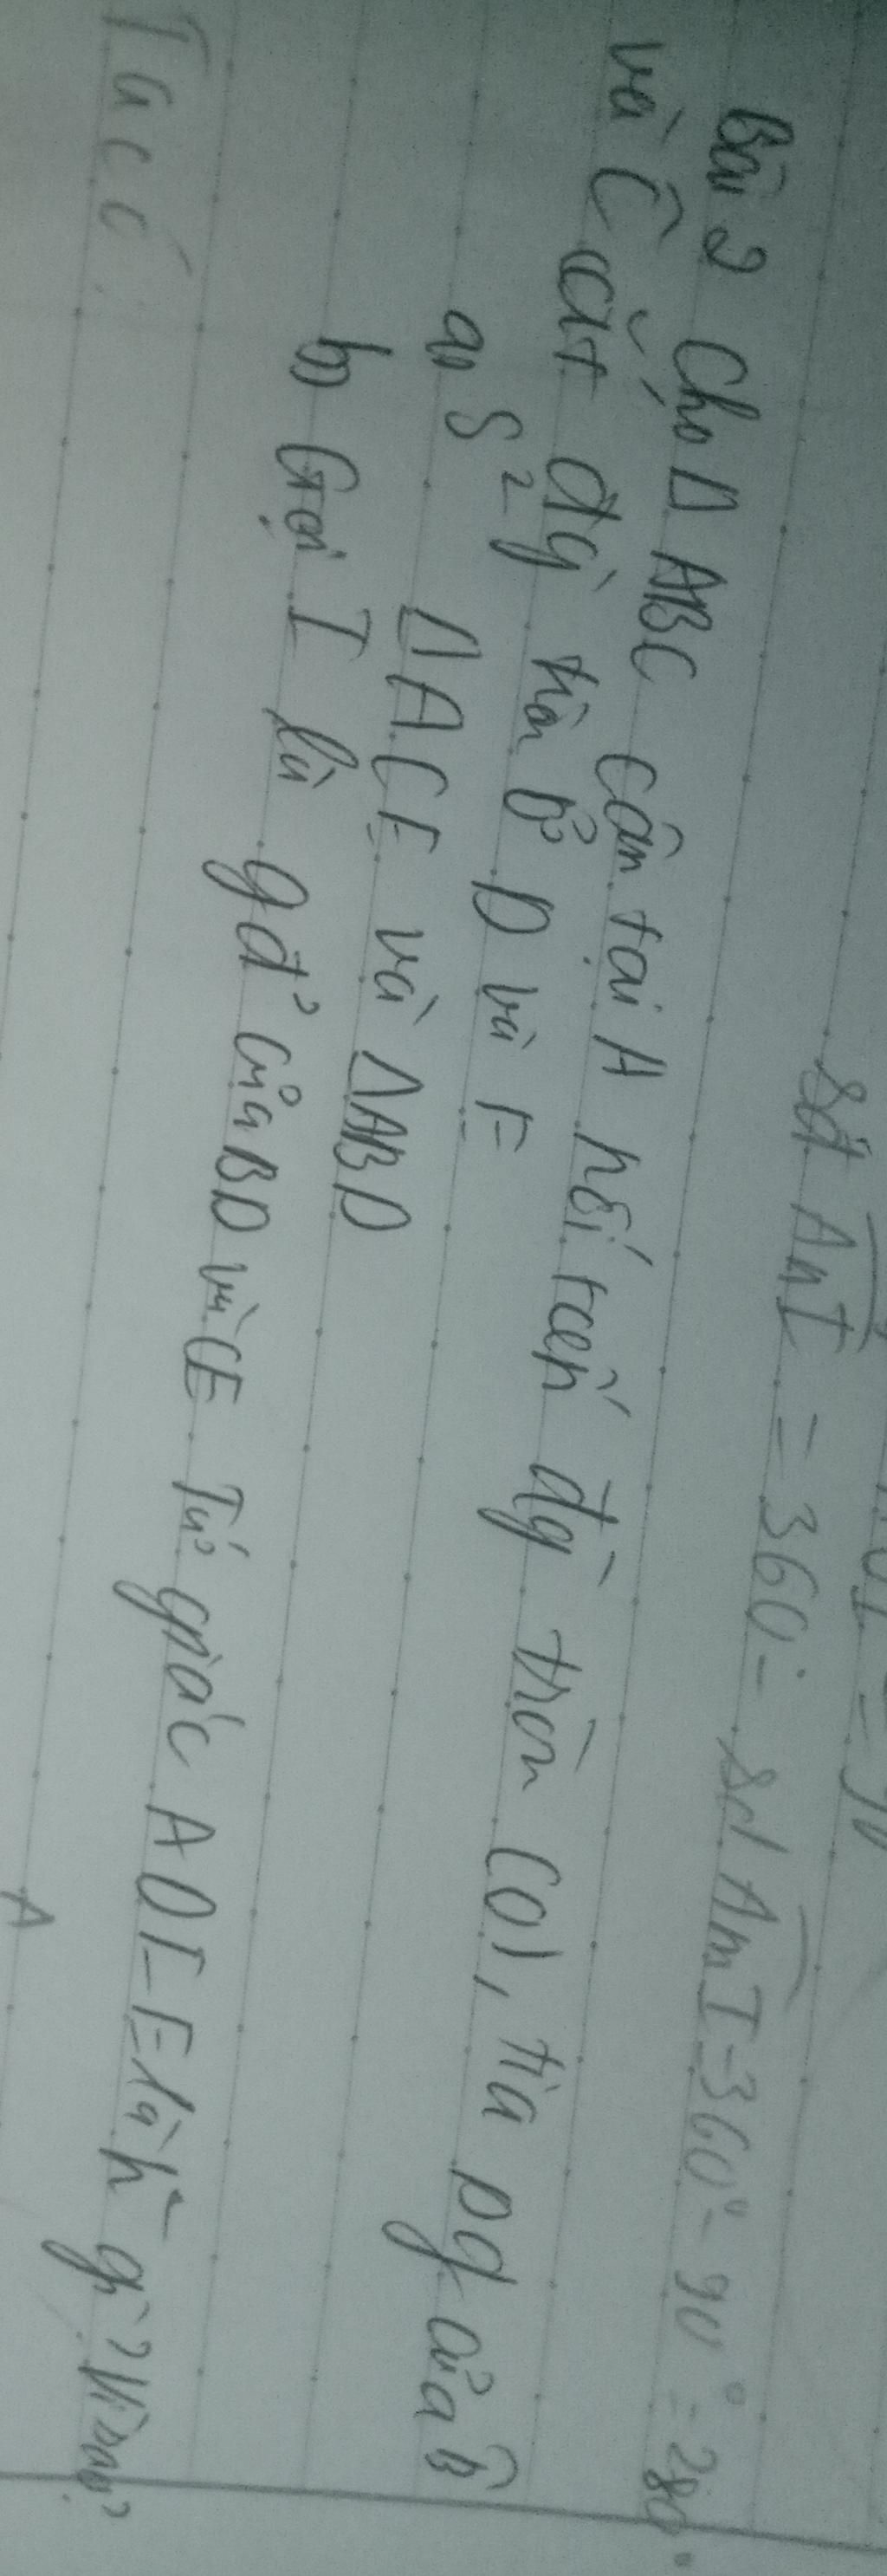 sđ AnI = 360 - sđ AmI = 360° - 90° = 280°
Bài 2 Cho Δ ABC cân tại A nội tiếp đg tròn (O), tia pg của B̂
và Ĉ cắt đg tròn ở D và E
a) S² ΔACE và ΔABD
b) Gọi I là gđ của BD và CE Tứ giác ADIE là h gì? Vì sao?
Ta có
A